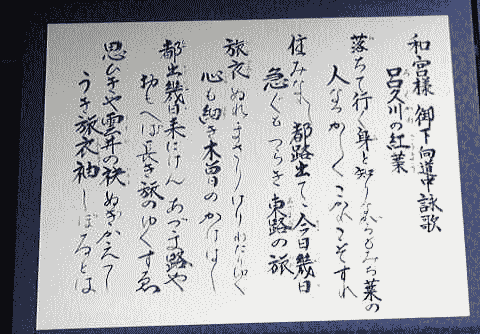 和宮様 御下向道中詠歌
呂久川の紅葉
落ちて行く身と知りながらもみぢ葉の
人なつかしくこがれこそすれ
住みなれし都路出でて今日幾日
急ぐもつらき東路の旅
旅衣ぬれまさりけりわたりゆく
心も細き木曽のかけはし
都出て幾日来にけんあづま路や
おもへば長き旅のゆくすゑ
思ひきや雲井の袂ぬぎかえて
うき旅衣袖しぼるとは